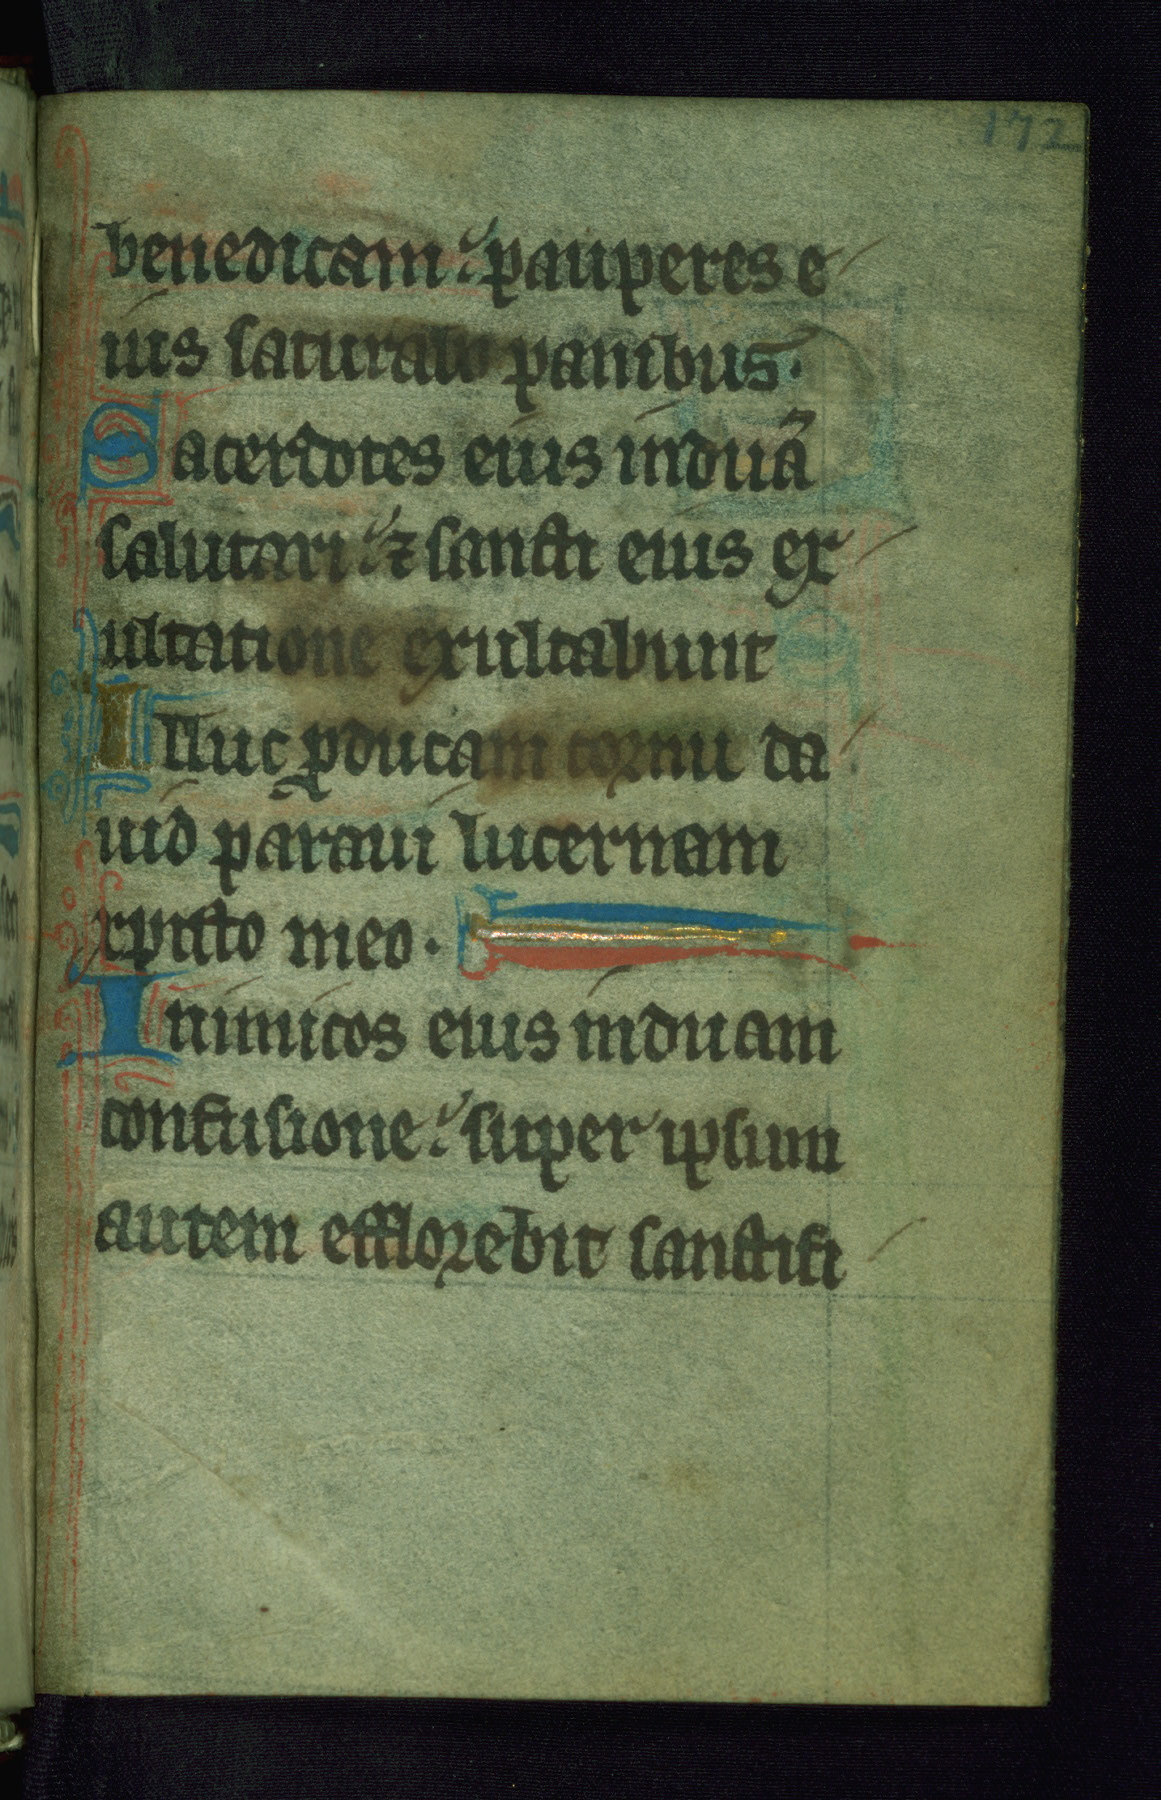 172
benedicam: pauperes e
ius saturabo panibus.
Sacerdotes eius induā
salutari: ⁊ sancti eius ex
ultatione exultabunt
Illuc ꝓducam cornu da
uid paraui lucernam
xpisto meo.
Inimicos eius induam
confusione: super ipsum
autem efflorebit sanctifi